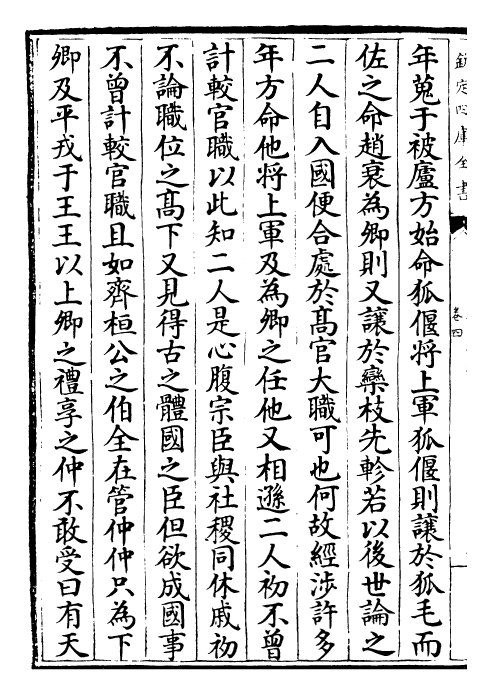 欽定四庫全書
卷四
年蒐于被廬方始命狐偃将上軍狐偃則讓於狐毛而
佐之命趙衰為卿則又讓於欒枝先軫若以後世論之
二人自入國便合處於髙官大職可也何故經涉許多
年方命他将上軍及為卿之任他又相遜二人初不曾
計較官職以此知二人是心腹宗臣與社稷同休戚初
不論職位之髙下又見得古之體國之臣但欲成國事
不曾計較官職且如齊桓公之伯全在管仲仲只為下
卿及平戎于王王以上卿之禮享之仲不敢受曰有天